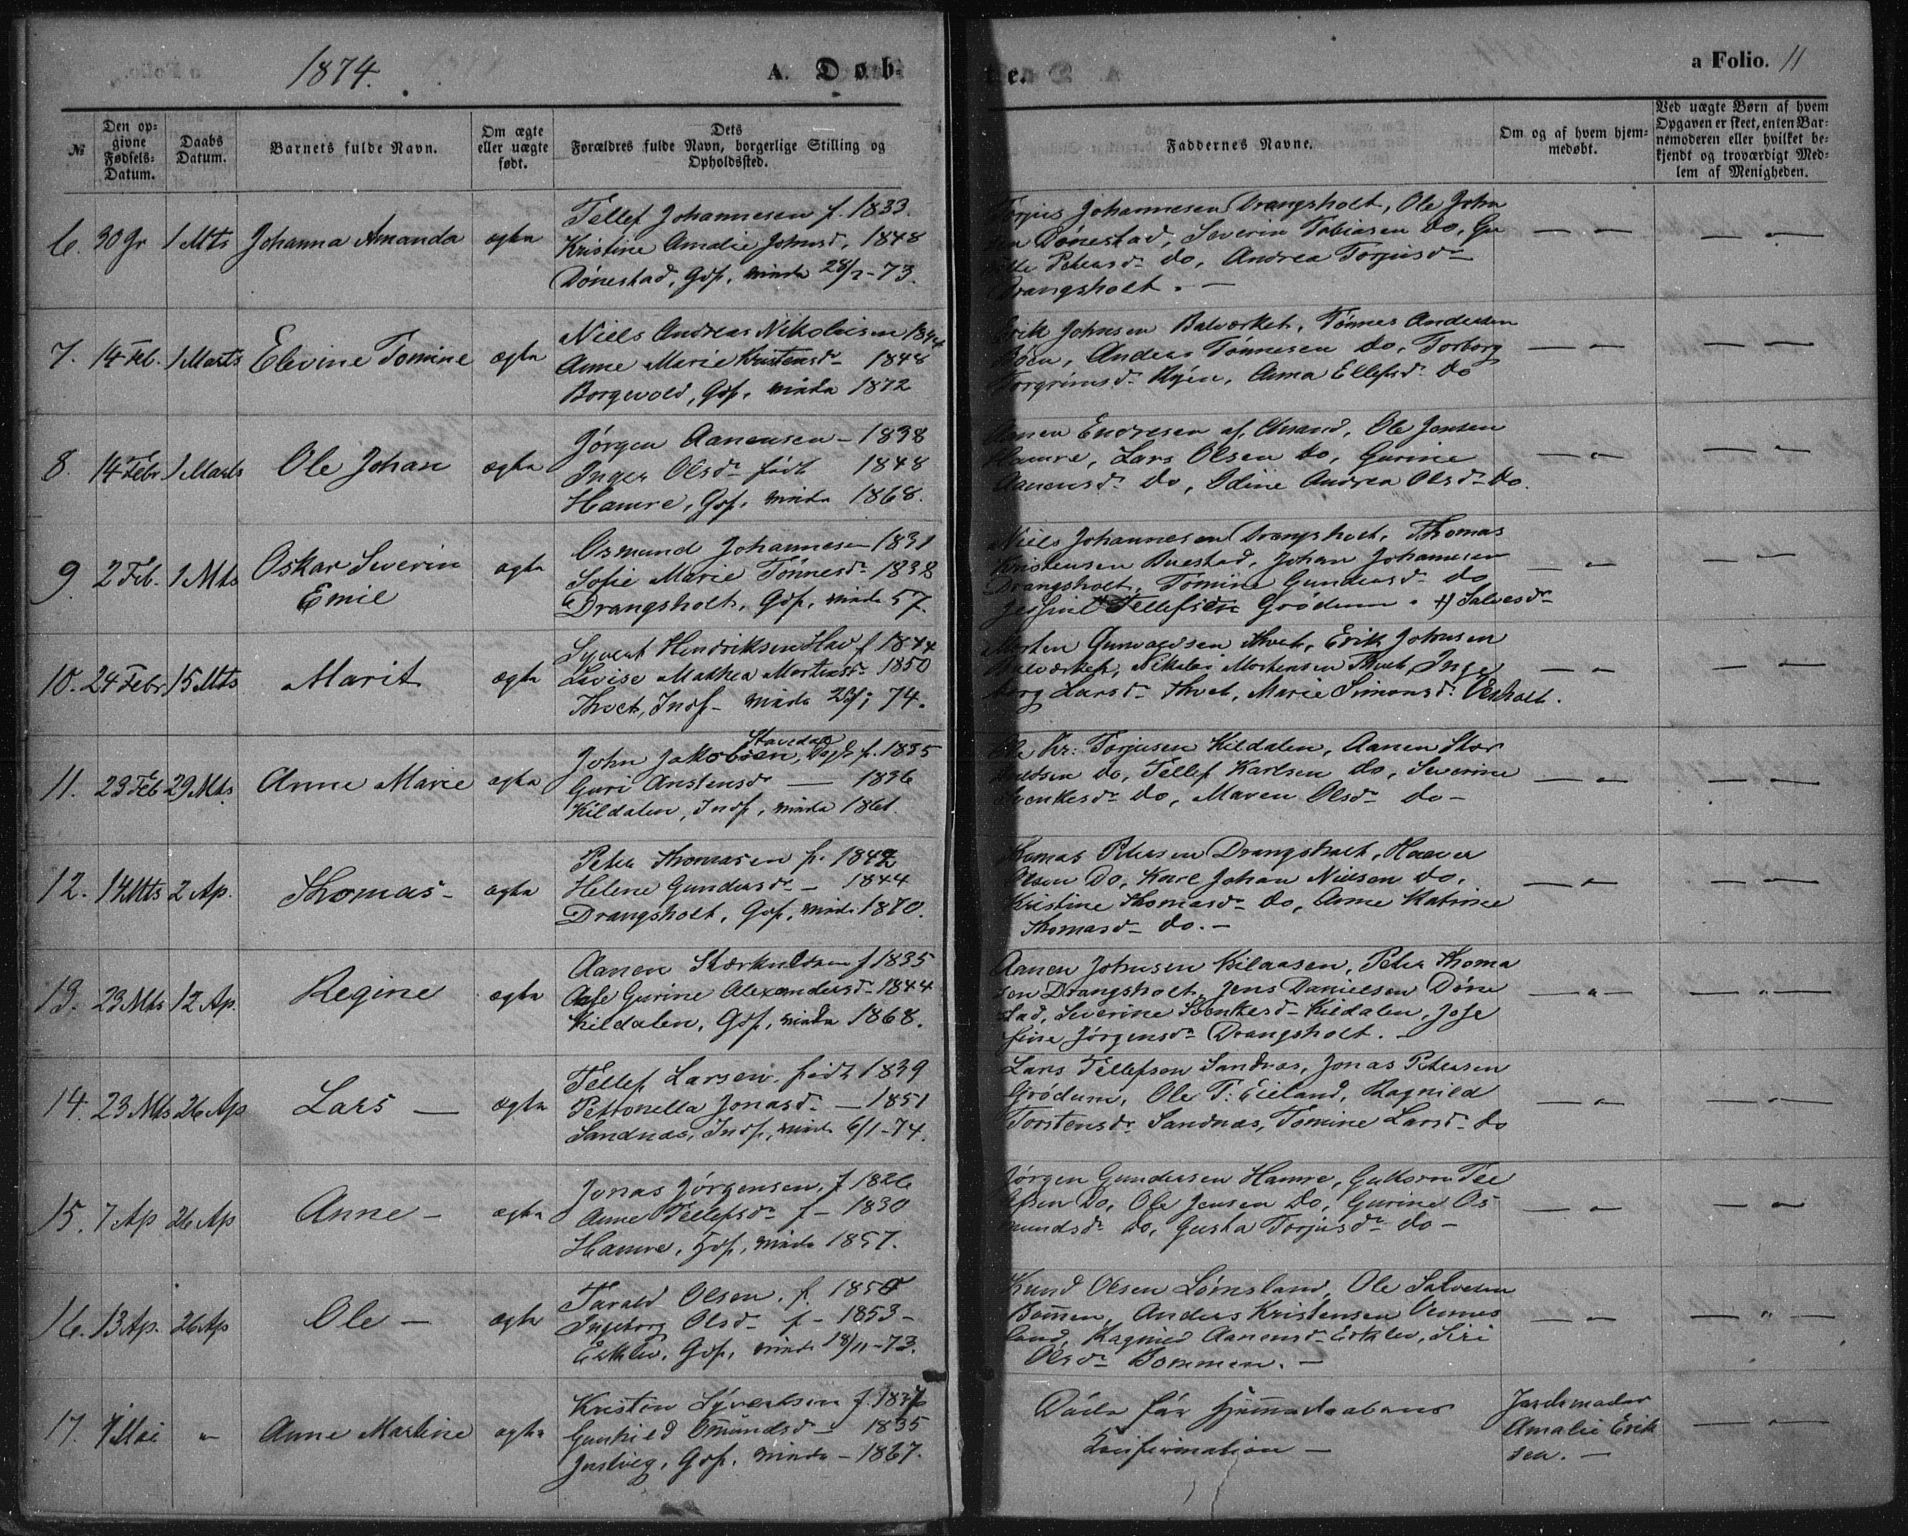 1874.
A. Døb-
te.
a Folio. 11
№
Den op-
givne
Fødsels-
Datum.
Daabs
Datum.
Barnets fulde Navn.
Om ægte
eller uægte
født.
Dets
Forældres fulde Navn, borgerlige Stilling og
Opholdssted.
Faddernes Navne.
Om og af hvem hjem-
medøbt.
Ved uægte Børn af hvem
Opgaven er skeet, enten Bar-
nemoderen eller hvilket be-
kjendt og troværdigt Med-
lem af Menigheden.
6. 30 Jr 1 Mts Johanna Amanda ægte
Tellef Johannesen f. 1833.
Kristine Amalie Johnsd. 1848
Dønestad, Gdf, vinda 28/2-73.
Torjus Johannesen Drangsholt, Ole John
sen Dønestad, Severin Tobiasen do, Gu
Petersd. do, Andrea Torjusd.
Drangsholt. —
7. 14 Feb. 1 Marts Elevine Tomine ægte
Niels Andreas Nikolaisen 1844
Anne Marie Kristensd. 1848
Borgevold, Gdf, vinda 1872
Erik Johnsen Balværket, Tønnes Andersen
Bøen, Anders Tønnesen do, Torborg
Torgrimsd. Kyén, Anna Ellefsd. do
8. 14 Febr 1 Marts Ole Johan ægte
Jørgen Aanensen — 1838
Inger Olsd. født 1848
Hamre, Gdf, vinda 1868.
Aanen Endresen af Chrsand, Ole Jensen
Hamre, Lars Olsen do, Gurine
Aanensd. do, Edine Andrea Olsd. do.
9. 2 Feb. 1 Mts Oskar Severin
Emil
ægte
Osmund Johannesen 1831
Sofie Marie Tønnesd. 1838
Drangsholt, Gdf, vinda 57.
Niels Johannesen Drangsholt, Thomas
Kristensen Buestad, Johan Johannesen
Drangsholt, Tomine Gundersd. do
Tellefsen Grødum. +) Salvesd.
10. 24 Febr 15 Mts Marit ægte
Syvert Hendriksen Hav f 1844
Lovise Mathea Mortensd. 1850
Thvet, Indf — vinda 74.
Morten Gunvaldsen Thvet, Erik Johnsen
Balværket, Nikolai Mortensen Thvet, Inge
borg Larsd. Thvet, Marie Simonsd. Vesholt.
11. 23 Feb 29 Mts Anne Marie ægte
John Jakobsen, f. 1835
Guri Anstensd — 1836
Kildalen, Indf, vinda 1861.
Ole Kr: Torjusen Kildalen, Aanen Stær
kuldsen do, Tellef Karlsen do, Severine
Svenkesd. do, Maren Olsd. do —
12. 14 Mts 2 Ap. Thomas — ægte
Peter Thomasen f. 1842
Helene Gundersd. — 1844
Drangsholt, Gdf, vinda 1870.
Thomas Petersen Drangsholt, Haaver
Olsen do, Karl Johan Nielsen do.
Kristine Thomasd. do, Anne Katrine
Thomasd. do. —
13. 23 Mts 12 Ap. Regine ægte
Aanen Stærkuldsen f 1835
Aase Gurine Alexandersd. 1844
Kildalen, Gdf, vinda 1868.
Aanen Johnsen Kilaasen, Peter Thoma
sen Drangsholt, Jens Danielsen Døne
stad, Severine Svenkesd. Kildalen, Jose
fine Jørgensd. Drangsholt. —
14. 23 Mts 26 Ap Lars — ægte
Tellef Larsen født 1839
Pettonella Jonasd. — 1851
Sandnæs, Indf, vinda 6/1-74.
Lars Tellefsen Sandnæs, Jonas Petersen
Grødum, Ole T: Eieland, Ragnild
Torstensd. Sandnæs, Tomine Larsd. do
15. 7 Ap 26 Ap Anne — ægte
Jonas Jørgensen, f 1826
Anne Tellefsd. f — 1830
Hamre, Gdf, vinda 1857.
Jørgen Gundersen Hamre, Guttorm Tel
lefsen do, Ole Jensen do, Gurine Os
mundsd. do, Gusta Torjusd. do —
16. 13 Ap. 26 Ap Ole — ægte
Tarald Olsen. f. 1850
Ingeborg Olsd. f — 1853 —
Erklev, Gdf, vinda 18/11-73.
Knud Olsen Lømsland, Ole Salvesen
Bommen, Anders Kristensen Vennes
land, Ragnild Aanensd. Erklev, Siri
Olsd. Bommen. —
17. 7 Mai " Anne Martine ægte
Kristen Syvertsen f. 1837
Gunhild Omundsd — 1835
Justvig, Gdf. vinda — 1867.
Døde før Hjemmedaabens
Konfirmation —
Jordemoder
Amalie Erik
sen. —